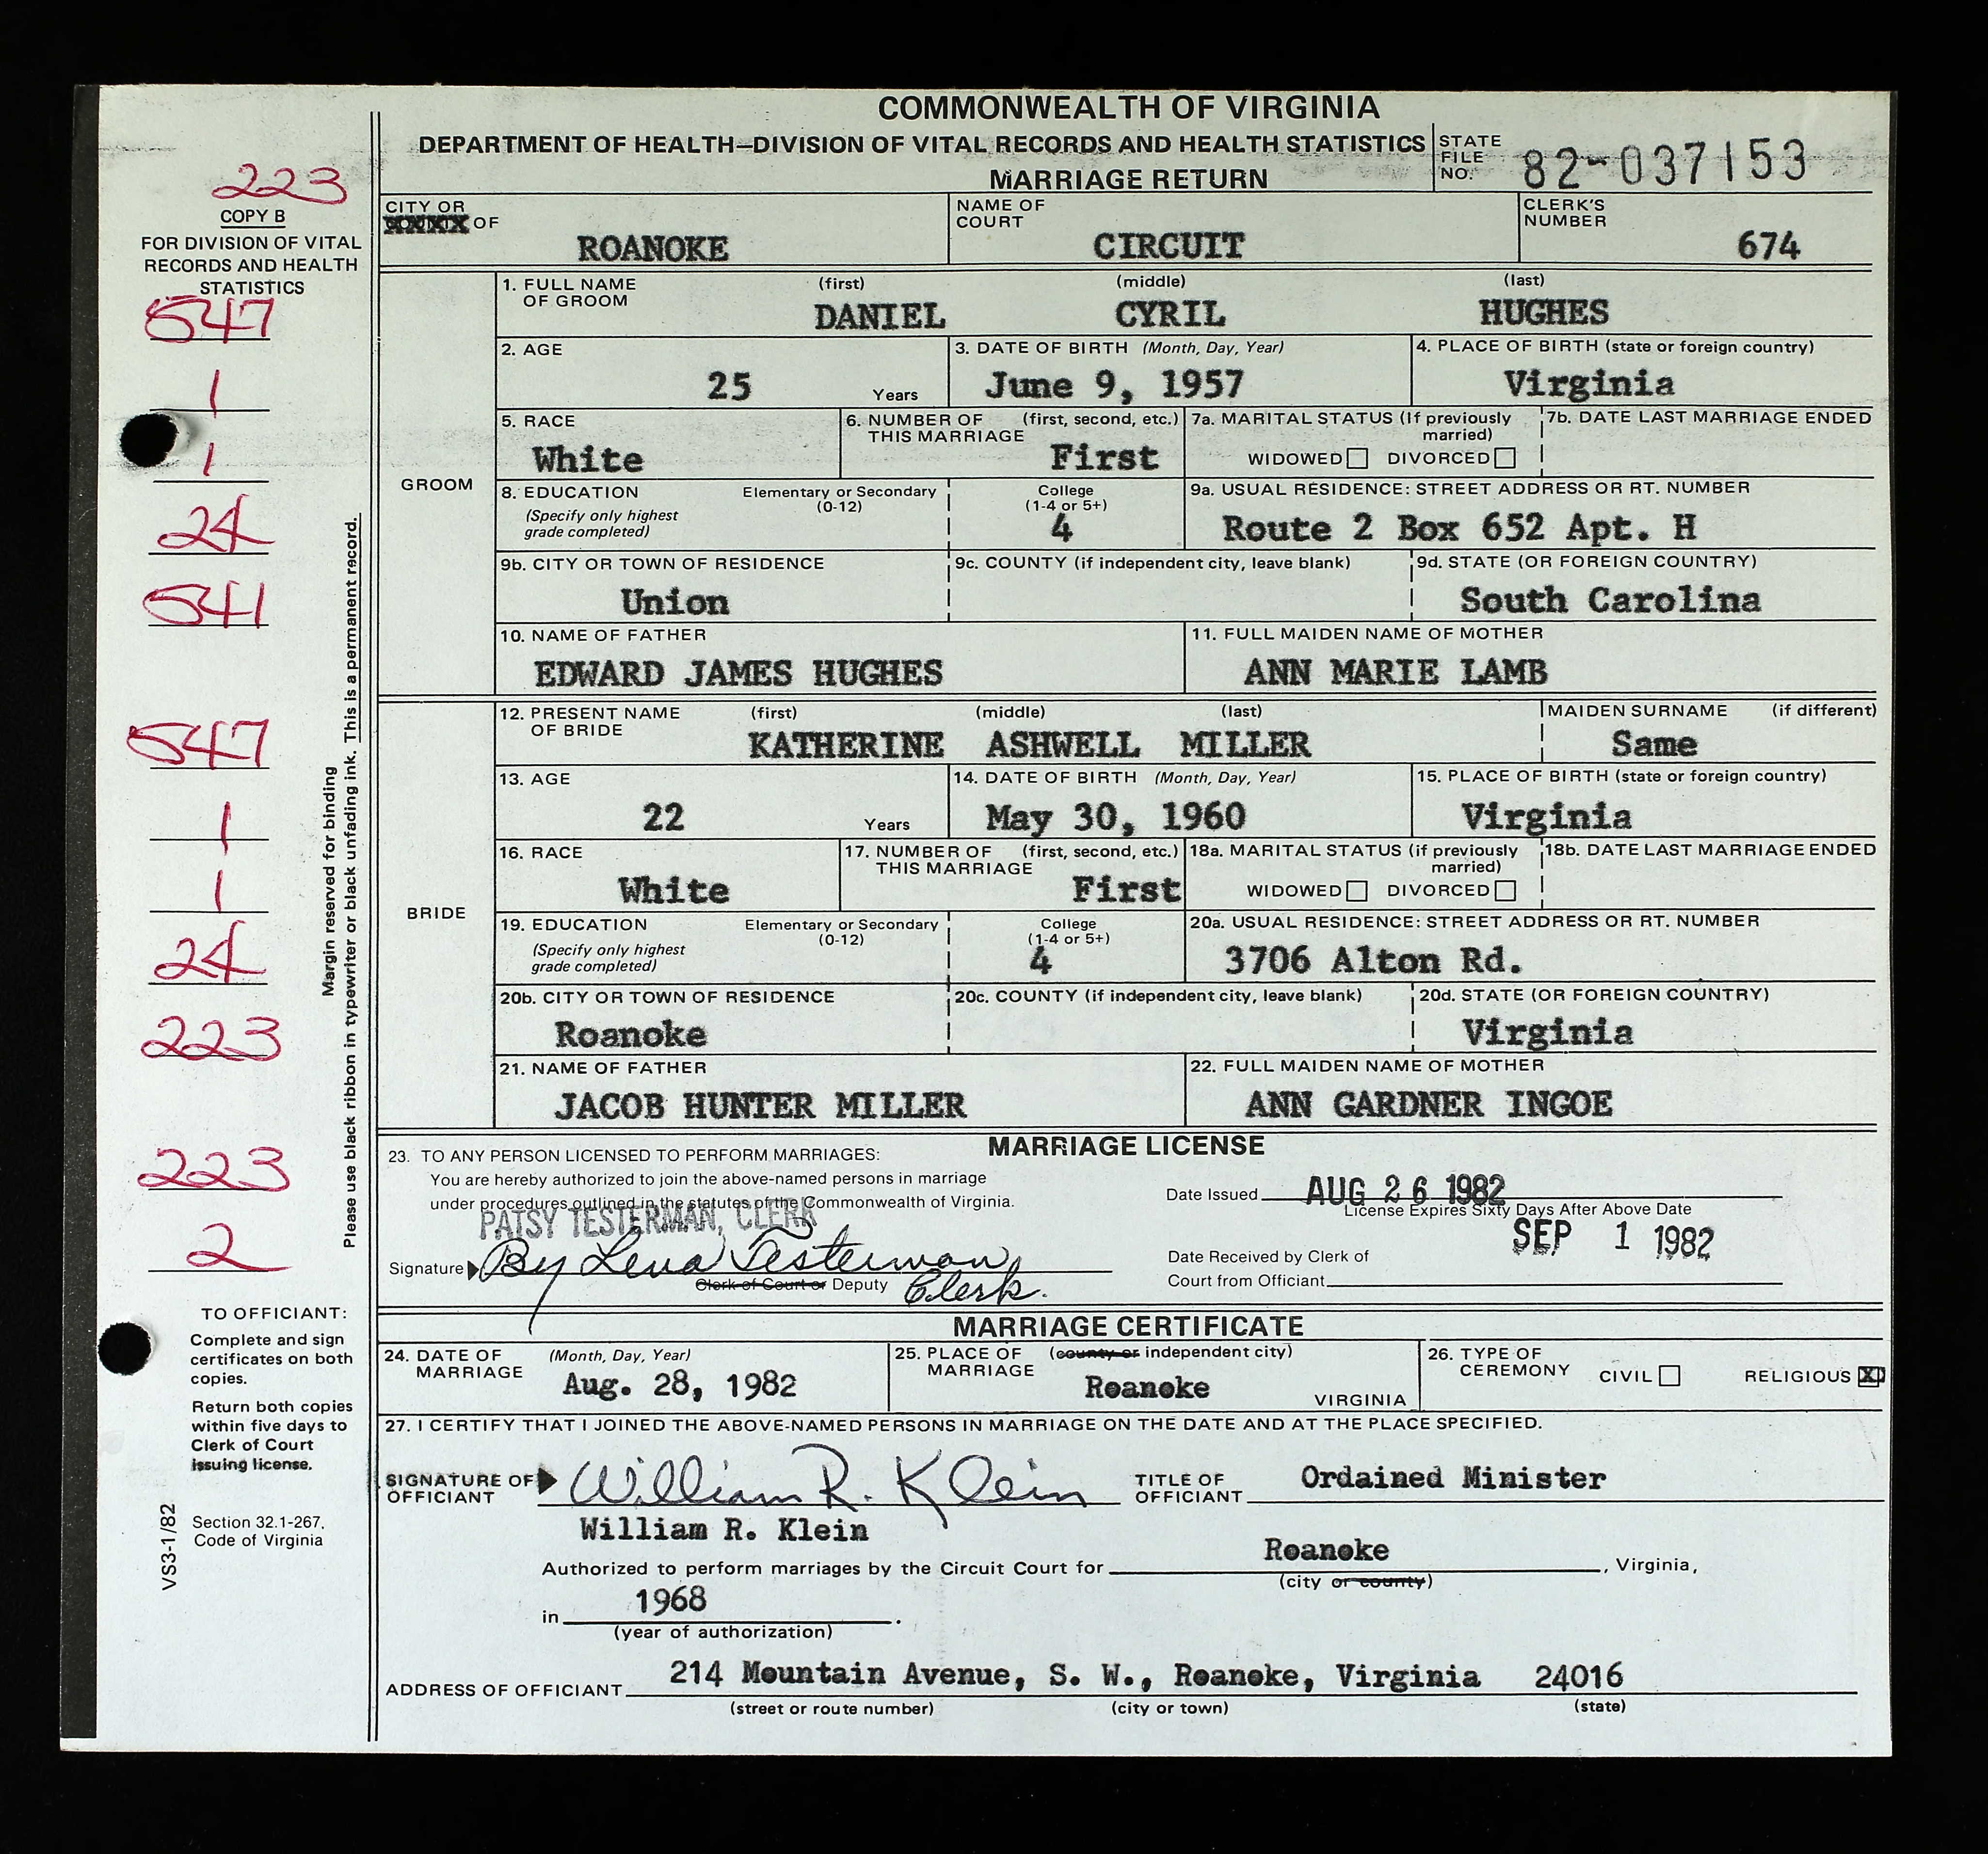 COMMONWEALTH OF VIRGINIA
DEPARTMENT OF HEALTH—DIVISION OF VITAL RECORDS AND HEALTH STATISTICS
MARRIAGE RETURN
STATE FILE NO. 82-037153
223
COPY B
FOR DIVISION OF VITAL
RECORDS AND HEALTH
STATISTICS
547
1
1
24
541
547
1
1
24
223
223
2
Margin reserved for binding
Please use black ribbon in typewriter or black unfading ink. This is a permanent record.
TO OFFICIANT:
Complete and sign
certificates on both
copies.
Return both copies
within five days to
Clerk of Court
issuing license.
Section 32.1-267,
Code of Virginia
VS3-1/82
CITY OR COUNTY OF ROANOKE
NAME OF COURT CIRCUIT
CLERK'S NUMBER 674
GROOM
1. FULL NAME OF GROOM (first) (middle) (last)
DANIEL CYRIL HUGHES
2. AGE 25 Years
3. DATE OF BIRTH (Month, Day, Year) June 9, 1957
4. PLACE OF BIRTH (state or foreign country) Virginia
5. RACE White
6. NUMBER OF THIS MARRIAGE (first, second, etc.) First
7a. MARITAL STATUS (If previously married) WIDOWED DIVORCED
7b. DATE LAST MARRIAGE ENDED
8. EDUCATION (Specify only highest grade completed) Elementary or Secondary (0-12) College (1-4 or 5+) 4
9a. USUAL RESIDENCE: STREET ADDRESS OR RT. NUMBER Route 2 Box 652 Apt. H
9b. CITY OR TOWN OF RESIDENCE Union
9c. COUNTY (if independent city, leave blank)
9d. STATE (OR FOREIGN COUNTRY) South Carolina
10. NAME OF FATHER EDWARD JAMES HUGHES
11. FULL MAIDEN NAME OF MOTHER ANN MARIE LAMB
BRIDE
12. PRESENT NAME OF BRIDE (first) (middle) (last) MAIDEN SURNAME (if different)
KATHERINE ASHWELL MILLER Same
13. AGE 22 Years
14. DATE OF BIRTH (Month, Day, Year) May 30, 1960
15. PLACE OF BIRTH (state or foreign country) Virginia
16. RACE White
17. NUMBER OF THIS MARRIAGE (first, second, etc.) First
18a. MARITAL STATUS (if previously married) WIDOWED DIVORCED
18b. DATE LAST MARRIAGE ENDED
19. EDUCATION (Specify only highest grade completed) Elementary or Secondary (0-12) College (1-4 or 5+) 4
20a. USUAL RESIDENCE: STREET ADDRESS OR RT. NUMBER 3706 Alton Rd.
20b. CITY OR TOWN OF RESIDENCE Roanoke
20c. COUNTY (if independent city, leave blank)
20d. STATE (OR FOREIGN COUNTRY) Virginia
21. NAME OF FATHER JACOB HUNTER MILLER
22. FULL MAIDEN NAME OF MOTHER ANN GARDNER INGOE
MARRIAGE LICENSE
23. TO ANY PERSON LICENSED TO PERFORM MARRIAGES:
You are hereby authorized to join the above-named persons in marriage
under procedures outlined in the statutes of the Commonwealth of Virginia.
PATSY TESTERMAN, CLERK
Signature By Lena Testerman,
Clerk of Court or Deputy Clerk.
Date Issued AUG 26 1982
License Expires Sixty Days After Above Date
SEP 1 1982
Date Received by Clerk of
Court from Officiant
MARRIAGE CERTIFICATE
24. DATE OF MARRIAGE (Month, Day, Year) Aug. 28, 1982
25. PLACE OF MARRIAGE (county or independent city) Roanoke VIRGINIA
26. TYPE OF CEREMONY CIVIL RELIGIOUS X
27. I CERTIFY THAT I JOINED THE ABOVE-NAMED PERSONS IN MARRIAGE ON THE DATE AND AT THE PLACE SPECIFIED.
SIGNATURE OF OFFICIANT William R. Klein
TITLE OF OFFICIANT Ordained Minister
William R. Klein
Authorized to perform marriages by the Circuit Court for Roanoke, Virginia,
(city or county)
in 1968.
(year of authorization)
ADDRESS OF OFFICIANT 214 Mountain Avenue, S. W., Roanoke, Virginia 24016
(street or route number) (city or town) (state)